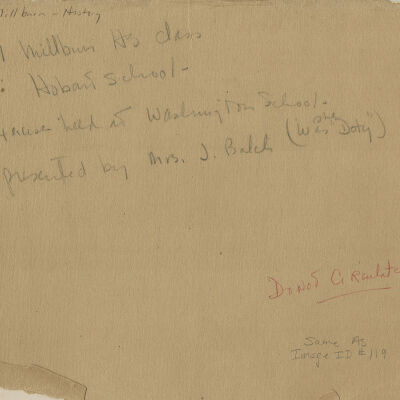 Millburn - History
Millburn HS class
: Hobart School -
held at Washington School.
presented by Mrs. J. Balch (She was "Doty")
Do not Circulate
Same As
Image ID #119